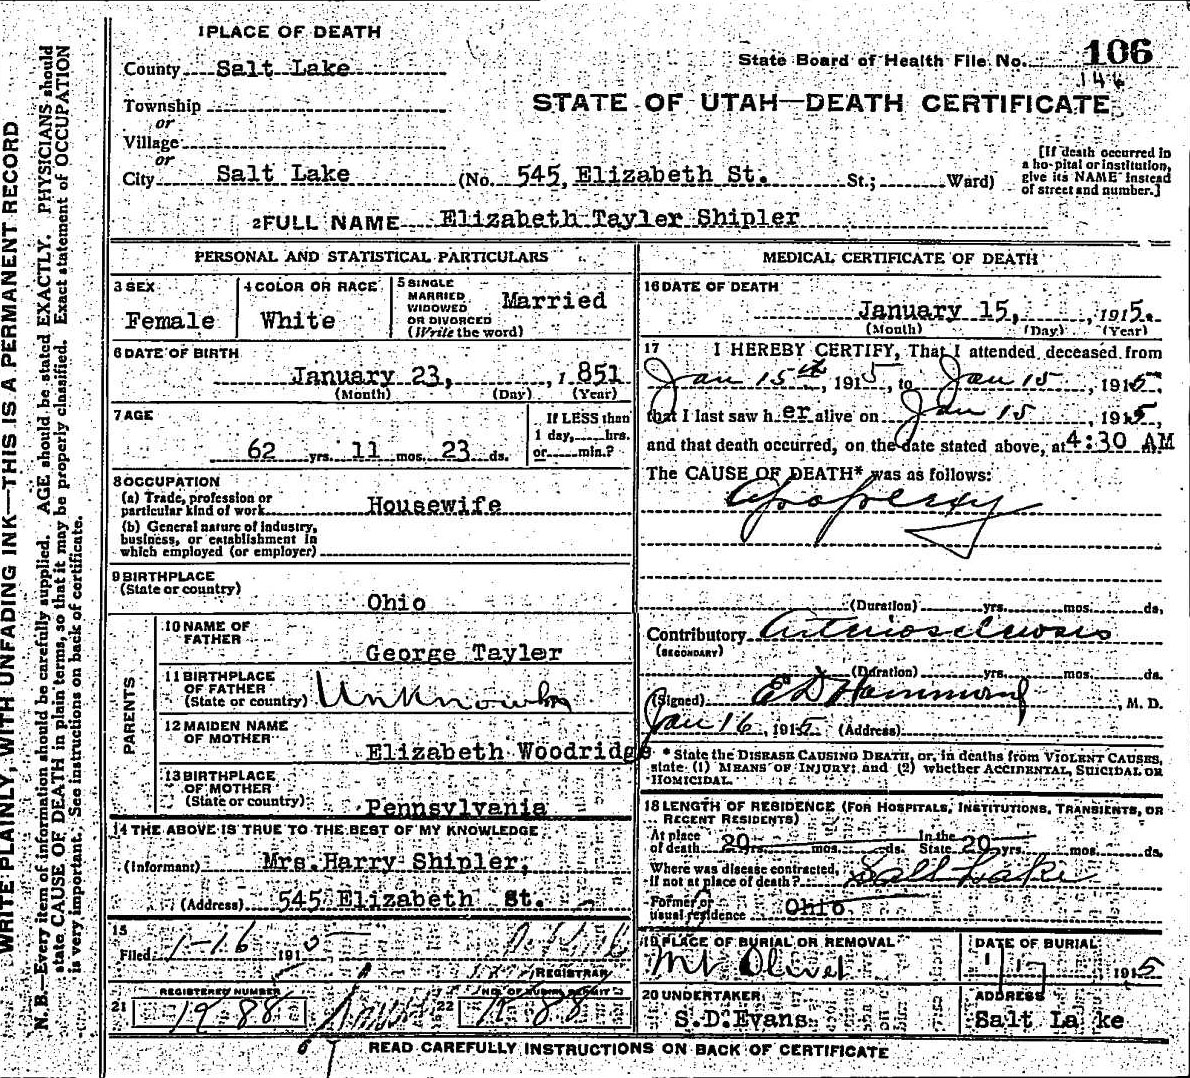 WRITE PLAINLY, WITH UNFADING INK—THIS IS A PERMANENT RECORD
N. B.—Every item of information should be carefully supplied. AGE should be stated EXACTLY. PHYSICIANS should
state CAUSE OF DEATH in plain terms, so that it may be properly classified. Exact statement of OCCUPATION
is very important. See instructions on back of certificate.
1 PLACE OF DEATH
County Salt Lake
State Board of Health File No. 106
146
Township
or
STATE OF UTAH—DEATH CERTIFICATE
Village
or
City Salt Lake (No. 545, Elizabeth St. St.; Ward)
[If death occurred in
a hospital or institution,
give its NAME instead
of street and number.]
2 FULL NAME Elizabeth Tayler Shipler
PERSONAL AND STATISTICAL PARTICULARS
3 SEX
Female
4 COLOR OR RACE
White
5 SINGLE
MARRIED
WIDOWED
OR DIVORCED
(Write the word)
Married
6 DATE OF BIRTH
January 23, , 1 851
(Month) (Day) (Year)
7 AGE
62 yrs. 11 mos. 23 ds.
If LESS than
1 day, hrs.
or min.?
8 OCCUPATION
(a) Trade, profession or
particular kind of work Housewife
(b) General nature of industry,
business, or establishment in
which employed (or employer)
9 BIRTHPLACE
(State or country)
Ohio
PARENTS
10 NAME OF
FATHER
George Tayler
11 BIRTHPLACE
OF FATHER
(State or country) Unknown
12 MAIDEN NAME
OF MOTHER
Elizabeth Woodridge
13 BIRTHPLACE
OF MOTHER
(State or country)
Pennsylvania
14 THE ABOVE IS TRUE TO THE BEST OF MY KNOWLEDGE
(Informant) Mrs. Harry Shipler,
(Address) 545 Elizabeth St.
15
Filed 1-16 1915
REGISTRAR
REGISTERED NUMBER
21 1988
NO. OF BURIAL PERMIT
22 1988
MEDICAL CERTIFICATE OF DEATH
16 DATE OF DEATH
January 15, , 1915.
(Month) (Day) (Year)
17 I HEREBY CERTIFY, That I attended deceased from
Jan 15th, 1915, to Jan 15, 1915
that I last saw her alive on Jan 15, 1915,
and that death occurred, on the date stated above, at 4:30 AM
The CAUSE OF DEATH* was as follows:
Apoplexy
(Duration) yrs. mos. ds.
Contributory Arteriosclerosis
(SECONDARY)
(Duration) yrs. mos. ds.
(Signed) E D Hammond, M. D.
Jan 16, 1915 (Address)
* State the DISEASE CAUSING DEATH, or, in deaths from VIOLENT CAUSES,
state (1) MEANS OF INJURY; and (2) whether ACCIDENTAL, SUICIDAL OR
HOMICIDAL.
18 LENGTH OF RESIDENCE (FOR HOSPITALS, INSTITUTIONS, TRANSIENTS, OR
RECENT RESIDENTS)
At place
of death 20 yrs. mos. ds.
In the
State 20 yrs. mos. ds.
Where was disease contracted,
if not at place of death? Salt Lake
Former or
usual residence Ohio
19 PLACE OF BURIAL OR REMOVAL
Mt Olivet
DATE OF BURIAL
1 17 1915
20 UNDERTAKER
S.D. Evans
ADDRESS
Salt Lake
READ CAREFULLY INSTRUCTIONS ON BACK OF CERTIFICATE